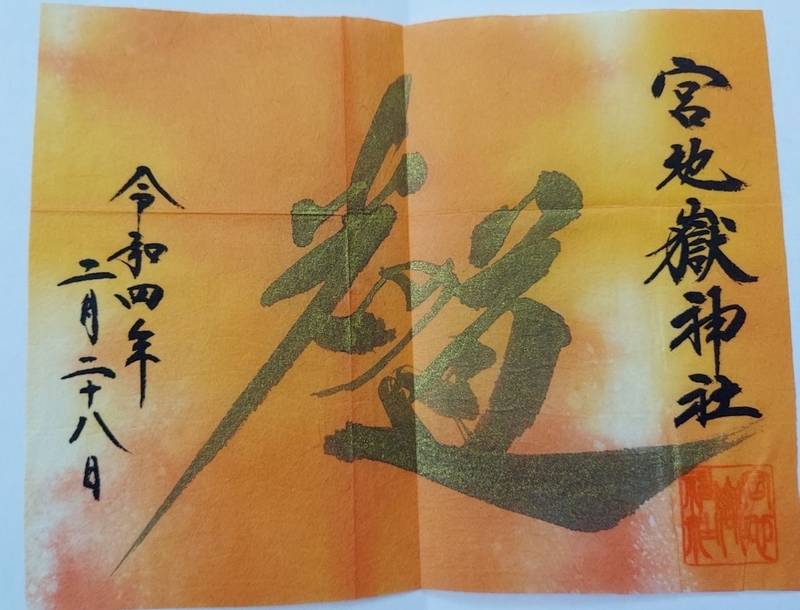 宮地嶽神社
宮地嶽神社
光の道
令和四年
二月二十八日